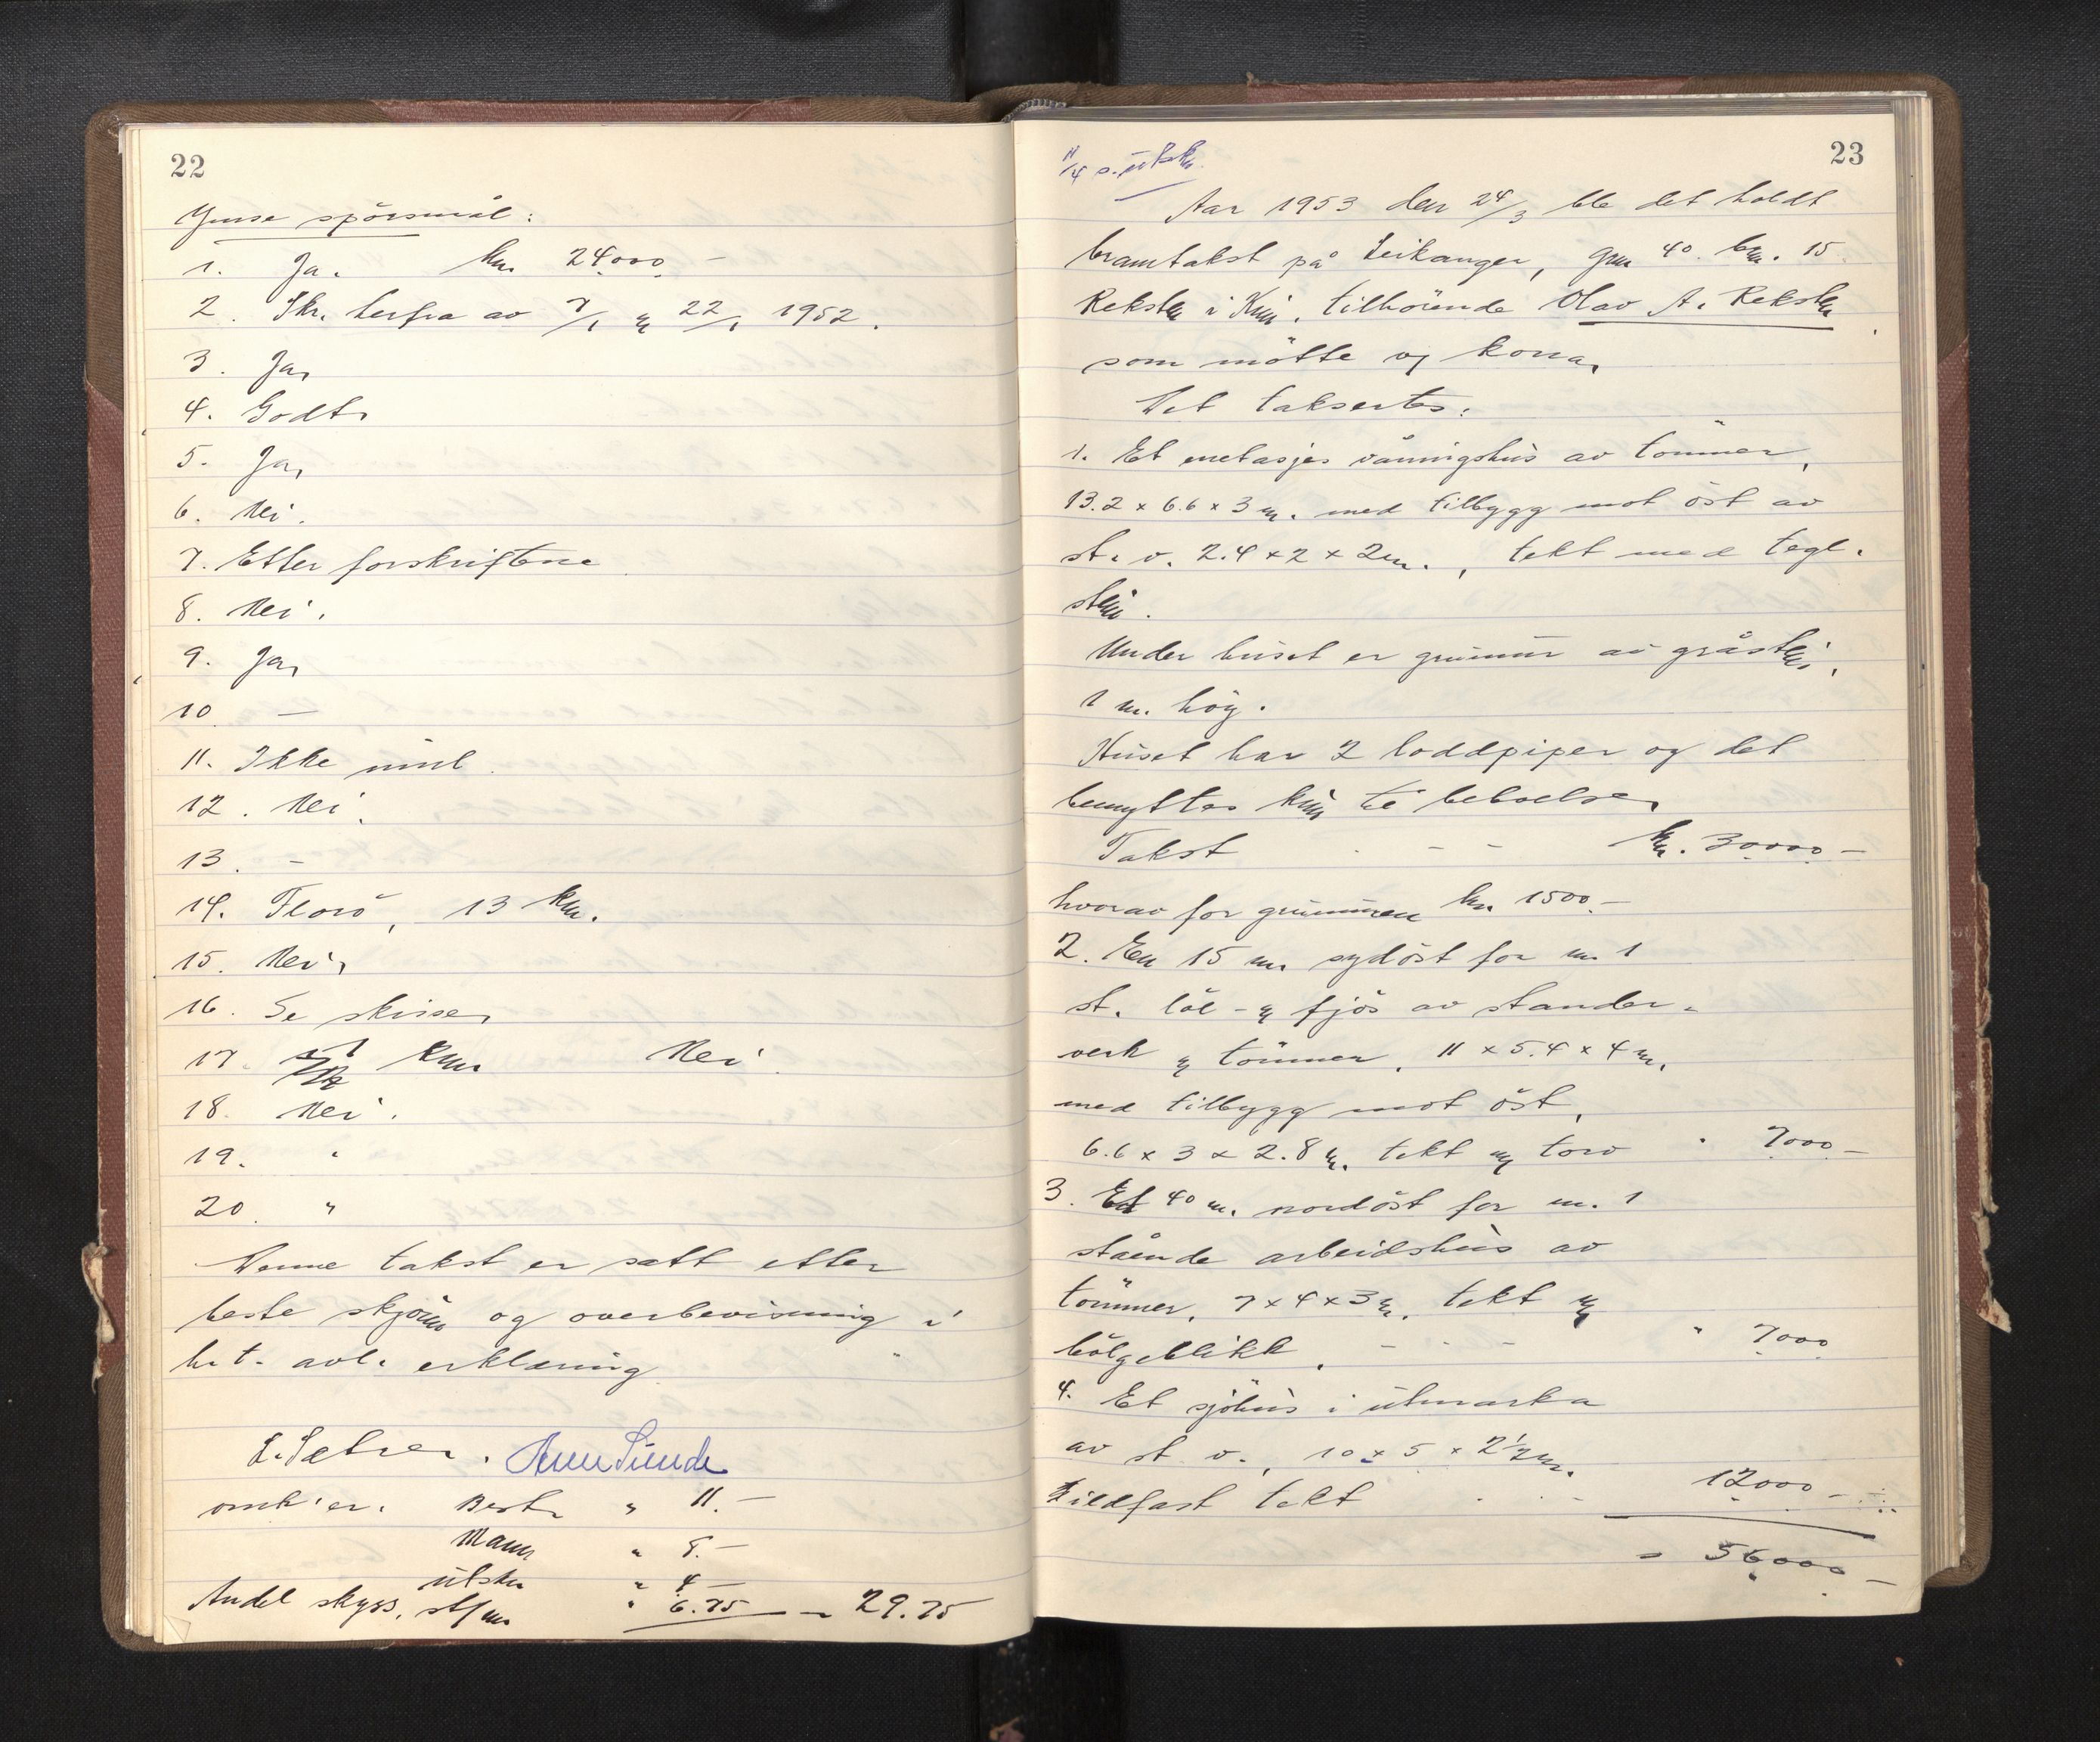 22
Ymse spörsmål:
1. Ja. kr. 24000.-
2. Skr. herfra av 7/1 og 22/1 1952.
3. Ja,
4. Godt.
5. Ja,
6. Nei.
7. Etter forskriftene
8. Nei.
9. Ja,
10 -
11. Ikke innl.
12. Nei.
13. -
14. Florö, 13 km.
15. Nei,
16. Se skisse,
17. km. Nei.
18. Nei.
19. "
20. "
Denne takst er satt etter
beste skjönn og overbevisning i
h.t. avl. erklæring.
L. Sætren.
omk'er. Best. " 11.-
Mann " 8.-
utskr " 4.-
Andel skyss, " 6.75 - 29.75
23
11/4 s. utskr.
Aar 1953 den 24/3 ble det holdt
branntakst på Leikanger, gnr 40. bnr. 15
Reksten i Kinn, tilhörende Olav A. Reksten,
som mötte og kona,
Det taksertes:
1. Et enetasjes våningshus av tömmer,
13.2 x 6.6 x 3 m. med tilbygg mot öst av
st. v. 2.4 x 2 x 2 m., tekt med tegl-
stein.
Under huset er grunnmur av gråstein,
1 m. höy.
Huset har 2 loddpiper og det
benyttes kun til beboelse,
Takst - - kr. 30000.-
hvorav for grunnmuren kr. 1500.-
2. En 15 m. sydöst for nr. 1
st. löe- og fjös av stander-
verk og tömmer, 11 x 5.4 x 4 m.
med tilbygg mot öst,
6.6 x 3 x 2.8 m. tekt m torv " 7000.-
3. Et 40 m. nordöst for nr. 1
stående arbeidshus av
tömmer, 7 x 4 x 3 m. tekt m
bölgeblikk. - - - " 7000
4. Et sjöhus i utmarka
av st. v., 10 x 5 x 2 1/2 m.
ildfast tekt - - 12000.-
= 56000.-